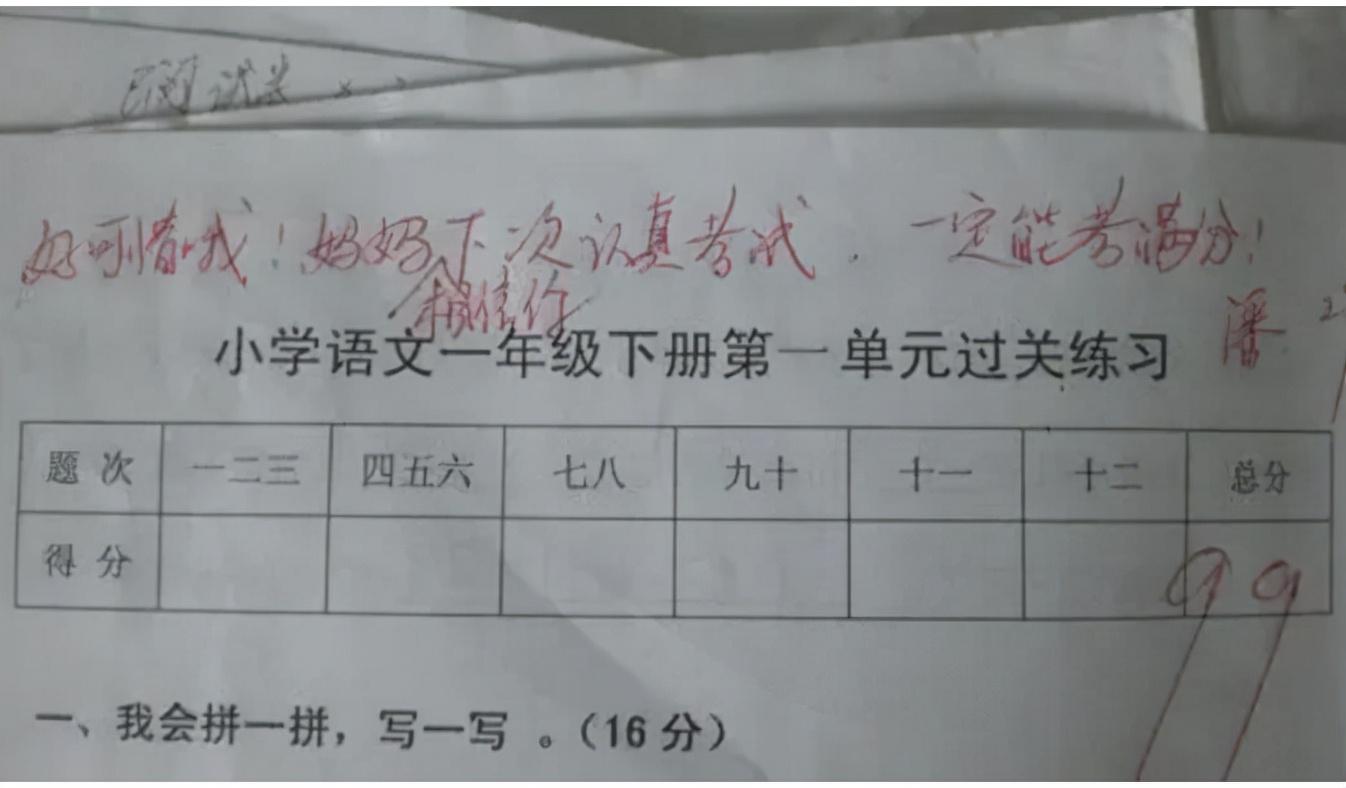 已阅 试卷
好可惜哦！妈妈下次认真考试．一定能考满分！
相信你
小学语文一年级下册第一单元过关练习
潘
题 次 一二三 四五六 七八 九十 十一 十二 总分
得 分 99
一、我会拼一拼，写一写 。（16 分）